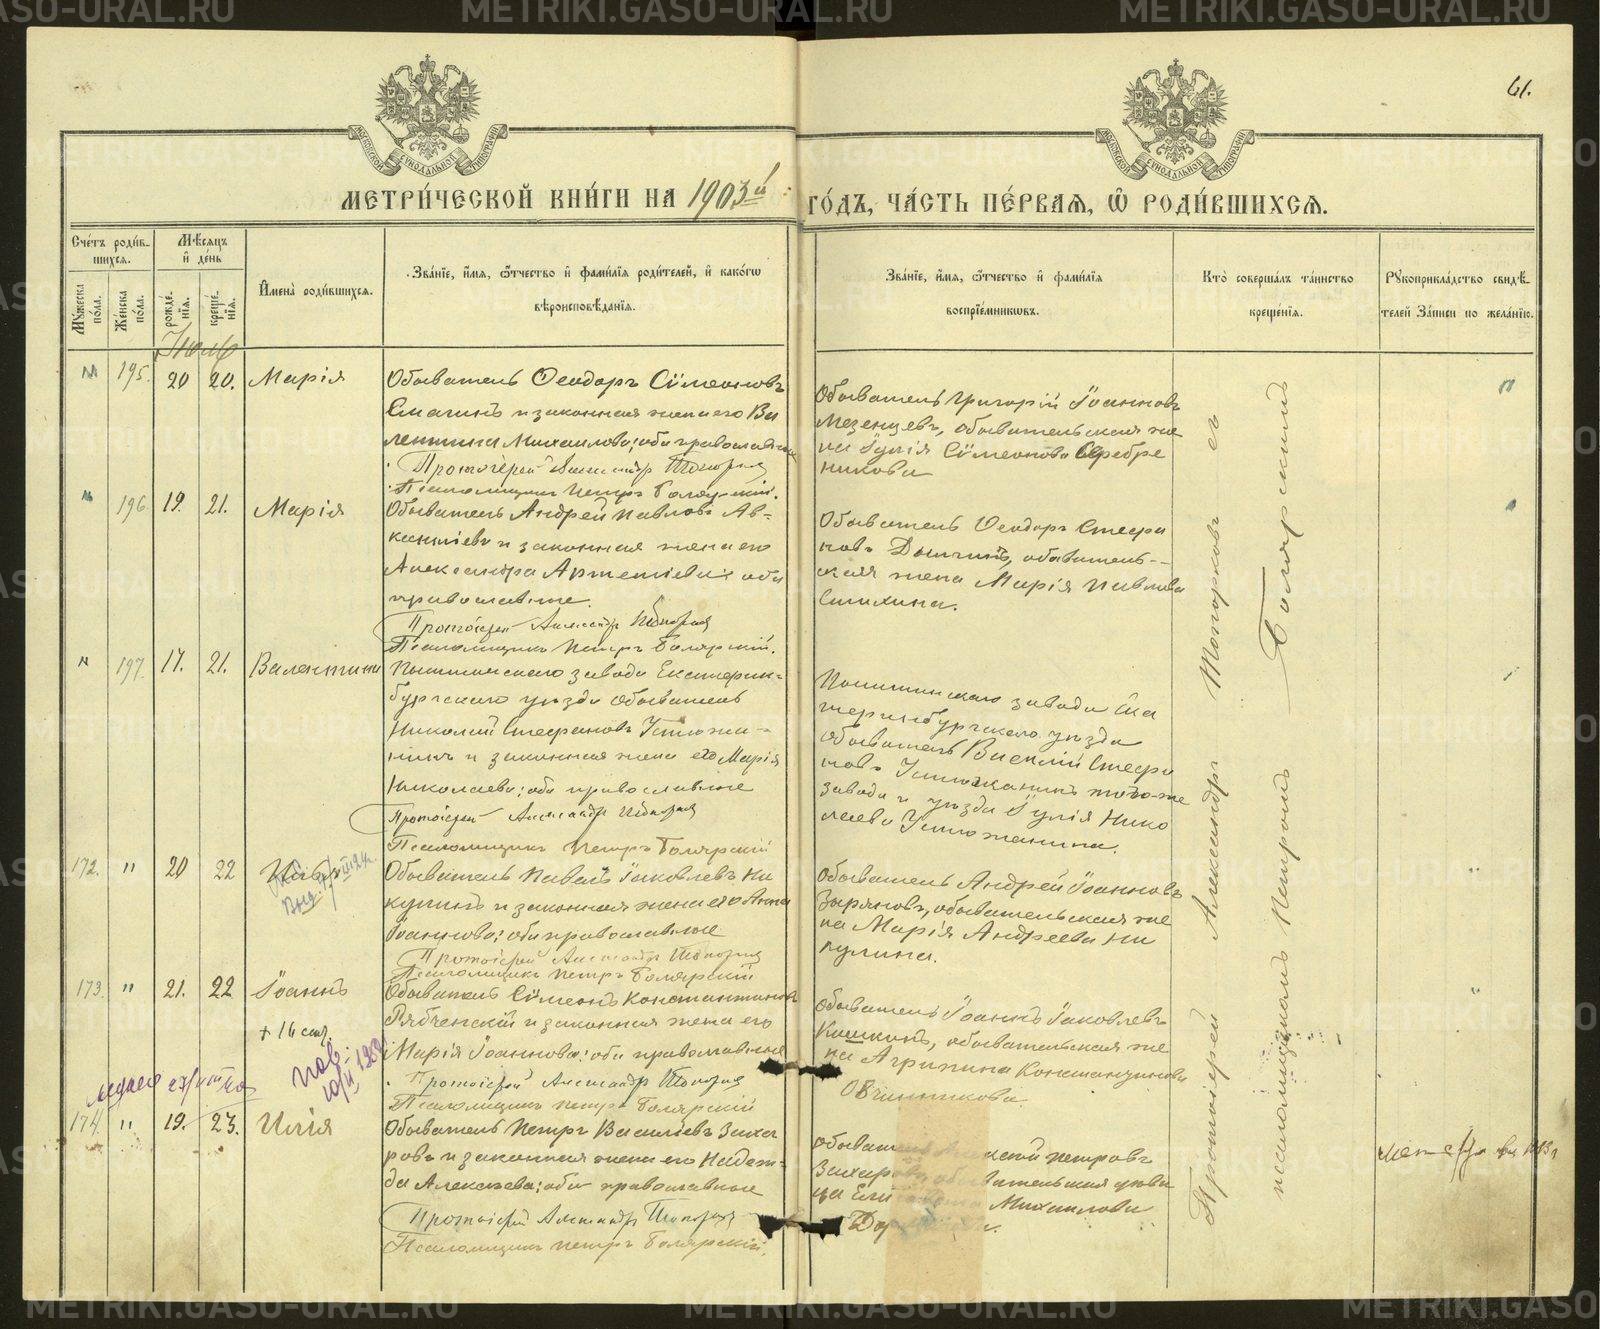 METRIKI.GASO-URAL.RU
61.
МОСКОВСКОЙ СѴНОДАЛЬНОЙ ТИПОГРАФІИ
МОСКОВСКОЙ СѴНОДАЛЬНОЙ ТИПОГРАФІИ
МЕТРИ́ЧЕСКОЙ КНИ́ГИ НА 1903й ГО́ДЪ, ЧА́СТЬ ПЕ́РВАЯ, Ѽ РОДИ́ВШИХСЯ.
Сче́тъ роди́в-
шихся.
Мѣ́сяцъ
и҆ де́нь
Мꙋ́жеска по́ла.
Же́нска по́ла.
рожде́-
нїѧ.
креще́-
нїѧ.
И҆мена̀ роди́вшихся.
Зва́нїе, и҆́мѧ, ѻ҆́тчество и҆ фами́лїѧ роди́телей, и҆ како́гѡ
вѣроисповѣ́данїѧ.
Зва́нїе, и҆́мѧ, ѻ҆́тчество и҆ фами́лїѧ
воспрїе́мникѡвъ.
Кто̀ соверша́лъ та́инство
креще́нїѧ.
Рꙋкоприкла́дство свидѣ́-
телей За́писи по жела́нїю.
Іюль
" 195. 20 20. Марія
Обыватель Ѳеодоръ Сѵмеоновъ
Смагинъ и законная жена его Ва
лентина Михаилова; оба православные
Протоіерей Александр Топорков
Псаломщикъ Петръ Боярскій.
Обыватель Григорій Іоанновъ
Мезенцевъ, обывательская же
на Іулія Сѵмеонова Серебре
никова
" 196 19. 21. Марія
Обыватель Андрей Павловъ Ав-
и законная жена его
Александра Артеміева; оба
православные.
Протоіерей Александр Топорков
Псаломщикъ Петръ Боярскій.
Обыватель Ѳеодоръ Стефа
новъ обыватель-
ская жена Марія Павлова
" 197. 17. 21. Валентина
Пышминскаго завода Екатерин-
бургскаго уѣзда обыватель
Николай Стефановъ Устюжа-
нинъ и законная жена его Марія
Николаева; оба православные
Протоіерей Александр Топорков
Псаломщикъ Петръ Боярскій
Пышминскаго завода Ека
теринбургскаго уѣзда
обыватель Василій Стефа
новъ Устюжанинъ того-же
завода и уѣзда Іулія Нико
лаева Устюжанина.
172. " 20 22
Обыватель Павелъ Іаковлевъ Ни
кулинъ и законная жена его Анна
Іоаннова; оба православные
Протоіерей Александр Топорков
Псаломщикъ Петръ Боярскій
Обыватель Андрей Іоанновъ
Зыряновъ, обывательская же
на Марія Андреева Ни
кулина.
173. " 21. 22 Іоаннъ
Обыватель Сѵмеонъ Константиновъ
Рябченскій и законная жена его
Марія Іоаннова; оба православные
Протоіерей Александр Топорков
Псаломщикъ Петръ Боярскій
Обыватель Іоаннъ Іаковлевъ
Кашкинъ, обывательская же
на Агрипина Константинова
Овчинникова.
174. " 19. 23. Илія
Обыватель Петръ Василіевъ Заха
ровъ и законная жена его Надеж-
да Алексѣева; оба православные
Протоіерей Александр Топорков
Псаломщикъ Петръ Боярскій.
Петровъ
Захаровъ
Михаилова
Протоіерей Александръ Топорковъ съ
псаломщикомъ Петромъ Боярскимъ